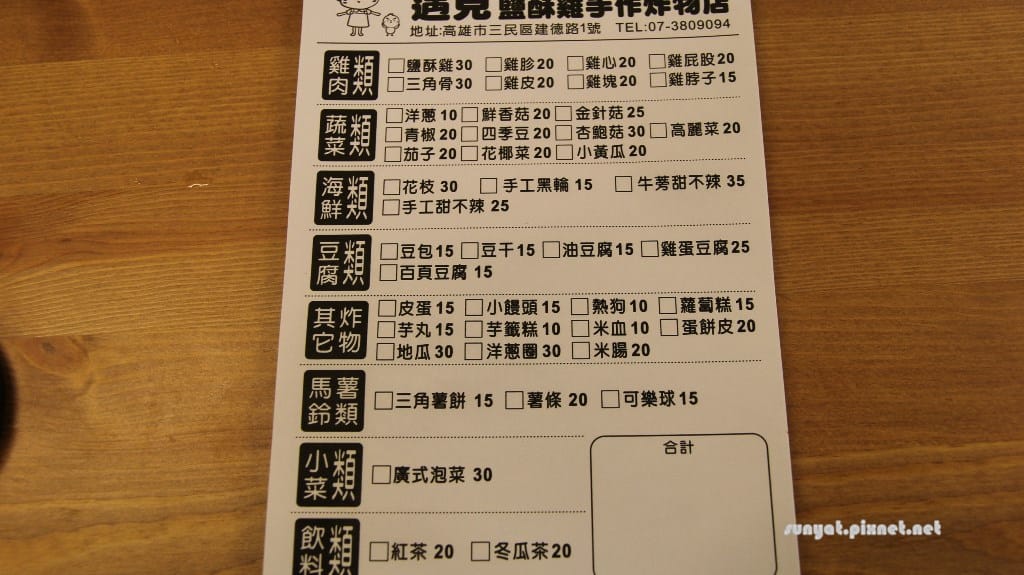 遇見 鹽酥雞手作炸物店
地址:高雄市三民區建德路1號 TEL:07-3809094
雞肉類
□鹽酥雞30 □雞胗20 □雞心20 □雞屁股20
□三角骨30 □雞皮20 □雞塊20 □雞脖子15
蔬菜類
□洋蔥10 □鮮香菇20 □金針菇25
□青椒20 □四季豆20 □杏鮑菇30 □高麗菜20
□茄子20 □花椰菜20 □小黃瓜20
海鮮類
□花枝30 □手工黑輪15 □牛蒡甜不辣35
□手工甜不辣25
豆腐類
□豆包15 □豆干15 □油豆腐15 □雞蛋豆腐25
□百頁豆腐15
其它炸物
□皮蛋15 □小饅頭15 □熱狗10 □蘿蔔糕15
□芋丸15 □芋籤糕10 □米血10 □蛋餅皮20
□地瓜30 □洋蔥圈30 □米腸20
馬鈴薯類
□三角薯餅15 □薯條20 □可樂球15
小菜類
□廣式泡菜30
合計
飲料類
□紅茶20 □冬瓜茶20
sunyat.pixnet.net